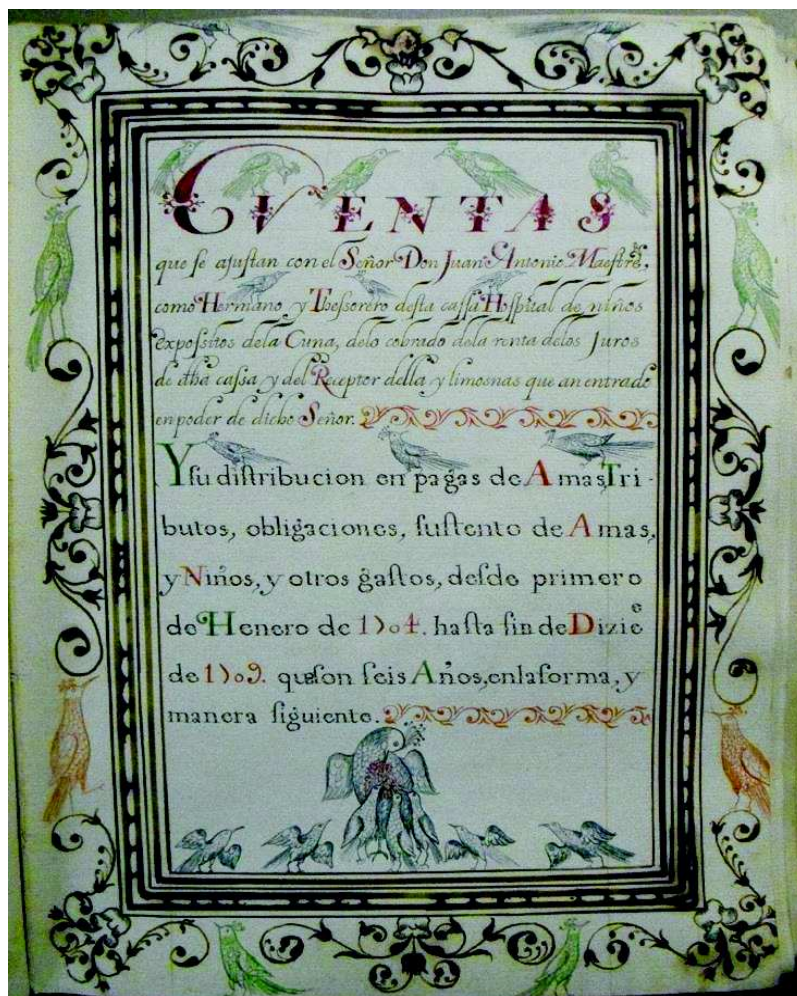 CVENTAS
que se ajustan con el Señor Don Juan Antonio Maestre,
como Hermano y Thessorero desta cassa Hospital de niños
expossitos dela Cuna, delo cobrado dela renta delos Juros
de dha cassa y del Receptor della y limosnas que an entrado
en poder de dicho Señor.
Y su distribucion en pagas de Amas, Tri-
butos, obligaciones, sustento de Amas,
y Niños, y otros gastos, desde primero
de Henero de 1704. hasta fin de Dizie
de 1709. que son seis Años, en la forma, y
manera siguiente.